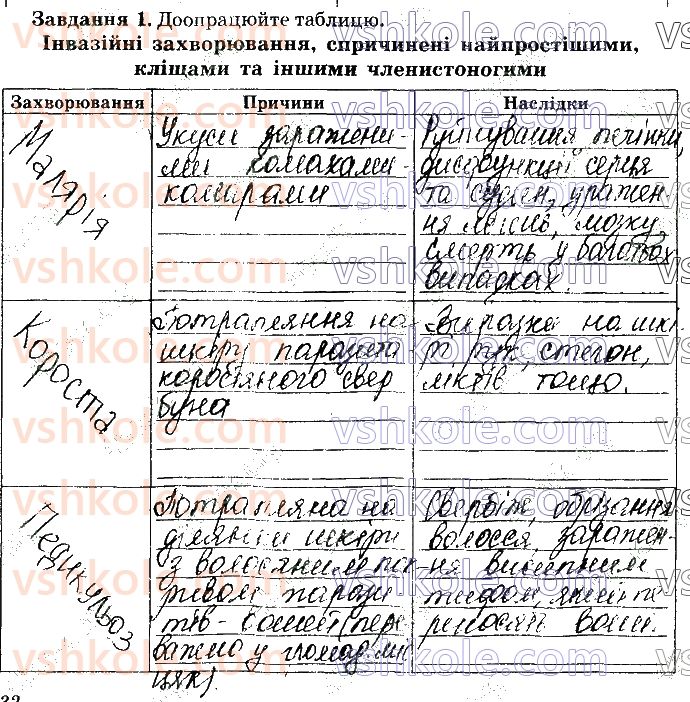 Завдання 1. Доопрацюйте таблицю.
Інвазійні захворювання, спричинені найпростішими,
кліщами та іншими членистоногими
Захворювання Причини Наслідки
Малярія
Укуси заражени-
ми комахами-
комарами
Руйнування печінки,
дисфункції серця
та судин, уражен
ня легень, мозку,
смерть у багатьох
випадках.
Короста
Потрапляння на
шкіру паразита
коростяного свер
буна
Виразки на шкі-
рі рук, стегон,
ліктів тощо.
Педикульоз
Потрапляна на
ділянки шкіри
з волосяним пок
ривом парази
тів - вошей (пере
важно у громад. мі
сцях)
Свербіж, обрізання
волосся, заражен-
ня висипним
тифом, який пе
реносять воші.
32
vshkole.com